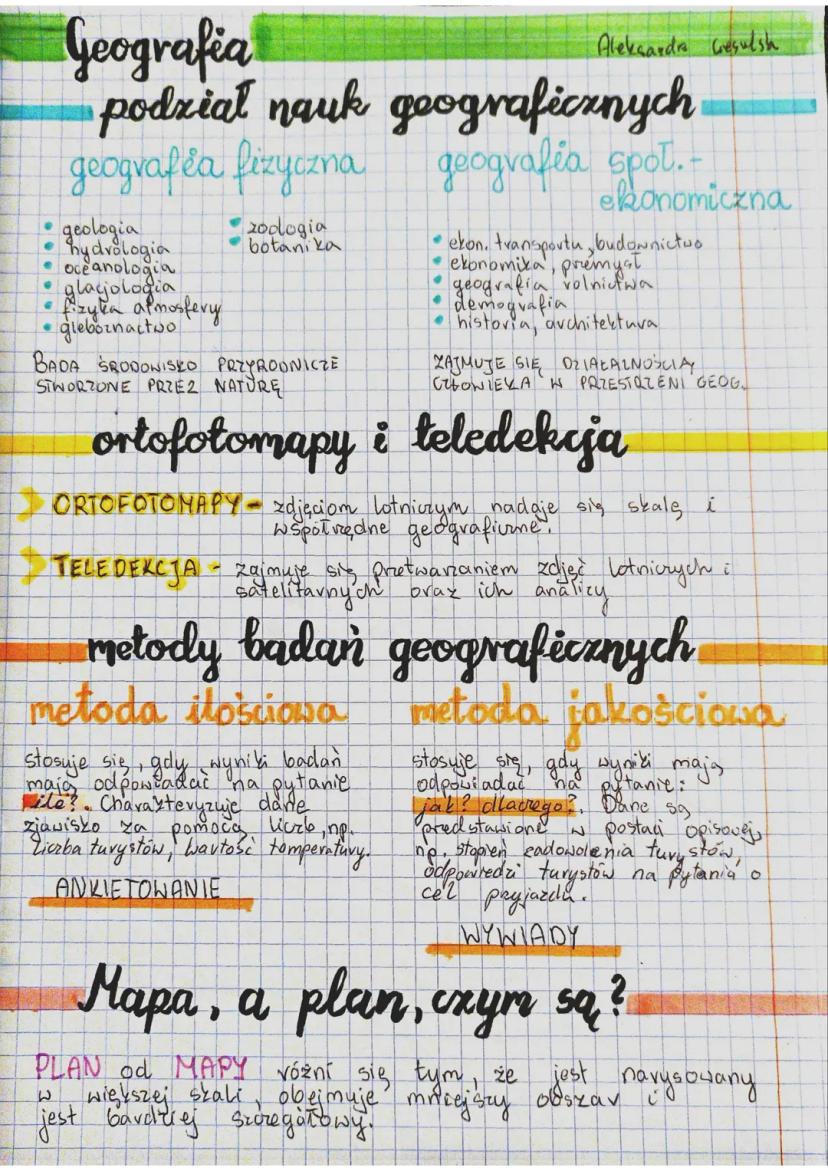 Geografia
Aleksandra
podział nauk geograficznych
geografia fizyczna
• geologia
• hydrologia
• oceanologia
• glacjologia
• fizyka atmosfery
• gleboznactwo
• zoologia
• botanika
BADA ŚRODOWISKO PRZYRODNICZE
STWORZONE PRZEZ NATURĘ
geografia społ.-
ekonomiczna
• ekon. transportu, budownictwo
• ekonomika, przemysł
• geografia rolnictwa
• demografia
• historia, architektura
ZAJMUJE SIĘ DZIAŁALNOŚCIĄ
CZŁOWIEKA W PRZESTRZENI GEOG.
ortofotomapy i teledekcja
ORTOFOTOMAPY - zdjęciom lotniczym nadaje się skalę i
współrzędne geograficzne.
TELEDEKCJA - zajmuje się przetwarzaniem zdjęć lotniczych i
satelitarnych oraz ich analizy
metody badań geograficznych
metoda ilościowa
stosuje się, gdy wyniki badań
mają odpowiadać na pytanie
ile?. Charakteryzuje dane
zjawisko za pomocą liczb, np.
liczba turystów, wartość temperatury.
ANKIETOWANIE
metoda jakościowa
stosuje się, gdy wyniki mają
odpowiadać na pytanie:
jak? dlaczego?. Dane są
przedstawione w postaci opisowej,
np. stopień zadowolenia turystów,
odpowiedzi turystów na pytania o
cel przyjazdu.
WYWIADY
Mapa, a plan, czym są?
PLAN od MAPY różni się tym, że jest narysowany
w większej skali, obejmuje mniejszy obszar i
jest bardziej szczegółowy.